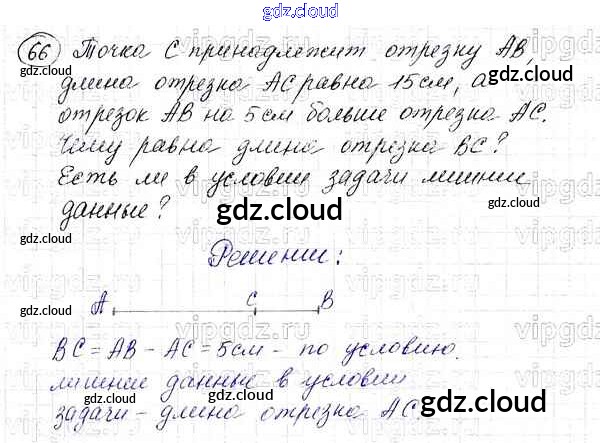 gdz.cloud
66 Точка С принадлежит отрезку АВ,
длина отрезка АС равна 15 см, а
отрезок АВ на 5 см больше отрезка АС.
Чему равна длина отрезка ВС?
Есть ли в условии задачи лишние
данные?
gdz.cloud
Решение:
А С В
ВС = АВ - АС = 5 см - по условию.
лишние данные в условии
задачи - длина отрезка АС.
gdz.cloud
vipgdz.ru